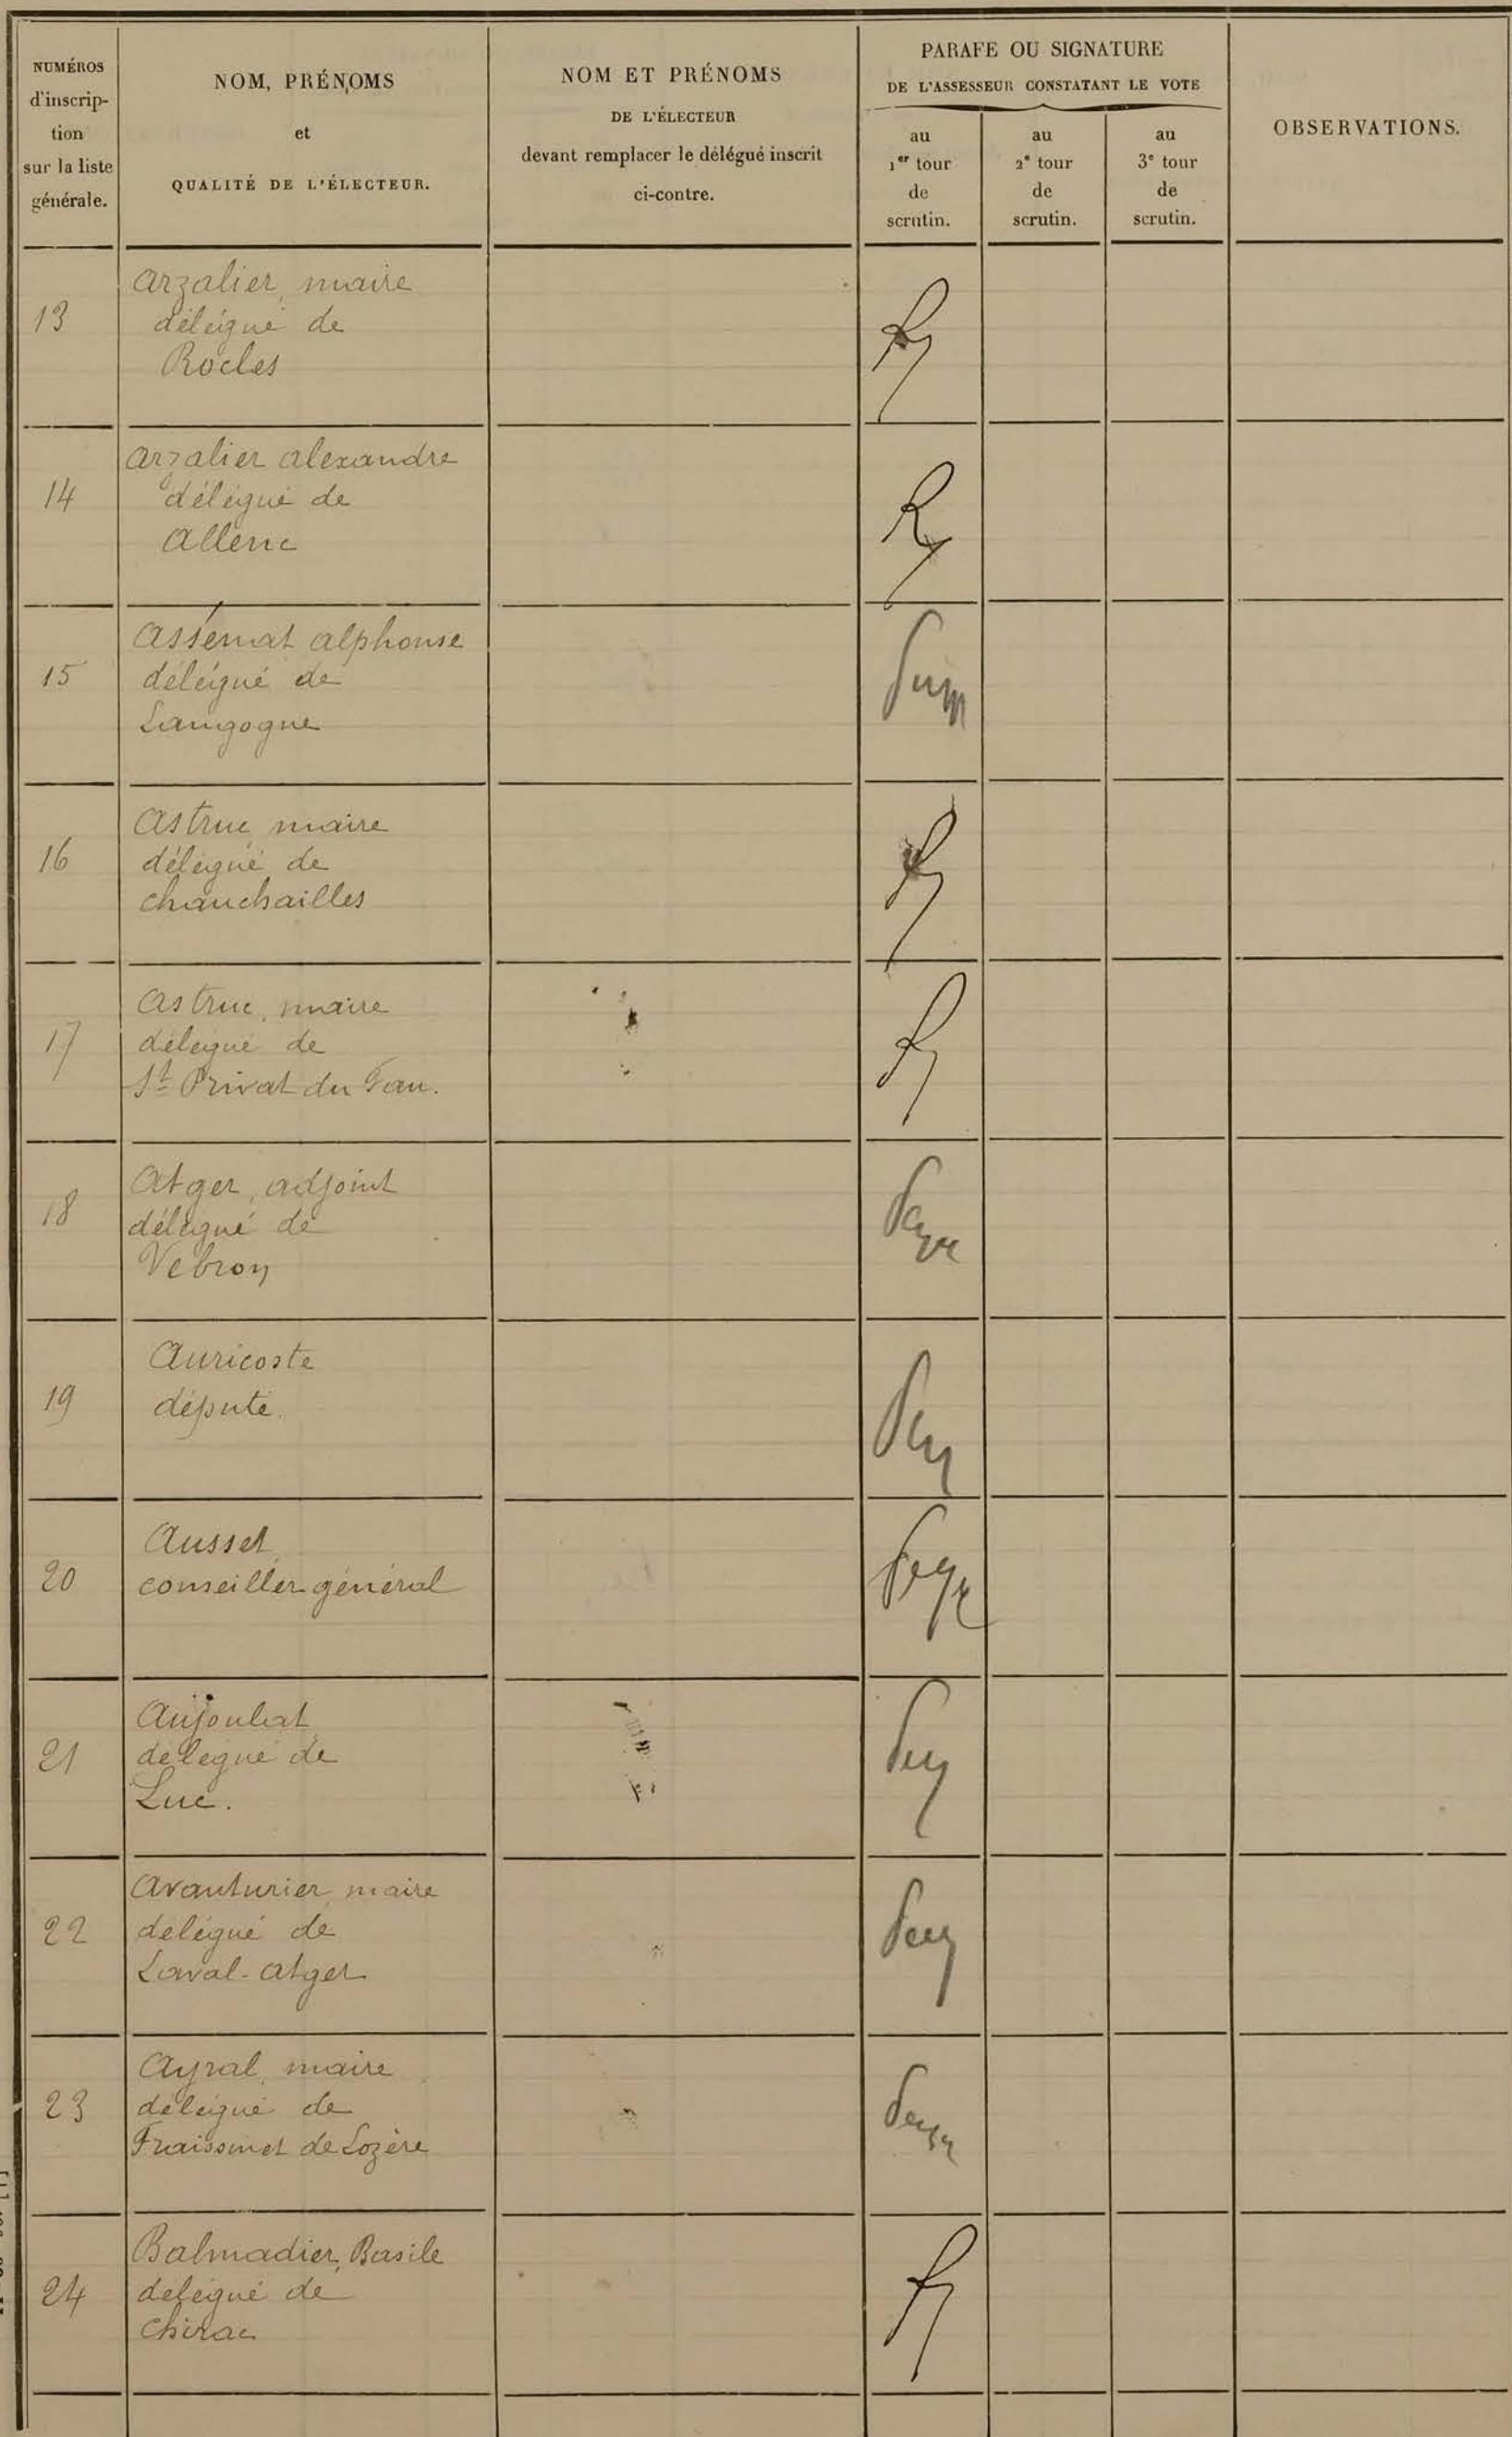 NUMÉROS
d'inscrip-
tion
sur la liste
générale.
NOM, PRÉNOMS
et
QUALITÉ DE L'ÉLECTEUR.
NOM ET PRÉNOMS
DE L'ÉLECTEUR
devant remplacer le délégué inscrit
ci-contre.
PARAFE OU SIGNATURE
DE L'ASSESSEUR CONSTATANT LE VOTE
au
1er tour
de
scrutin.
au
2e tour
de
scrutin.
au
3e tour
de
scrutin.
OBSERVATIONS.
13
Arzalier, maire
délégué de
Rocles
14
Arzalier Alexandre
délégué de
Allenc
15
Assénat Alphonse
délégué de
Langogne
16
Astruc maire
délégué de
Chauchailles
17
Astruc, maire
délégué de
St Privat du Fau.
18
Atger, adjoint
délégué de
Vebron
19
Auricoste
député.
20
Ausset
conseiller général
21
Aujoulat
délégué de
Luc.
22
Avanturier maire
délégué de
Laval-Atger
23
Ayral, maire
délégué de
Fraissinet de Lozère
24
Balmadier, Basile
délégué de
Chirac